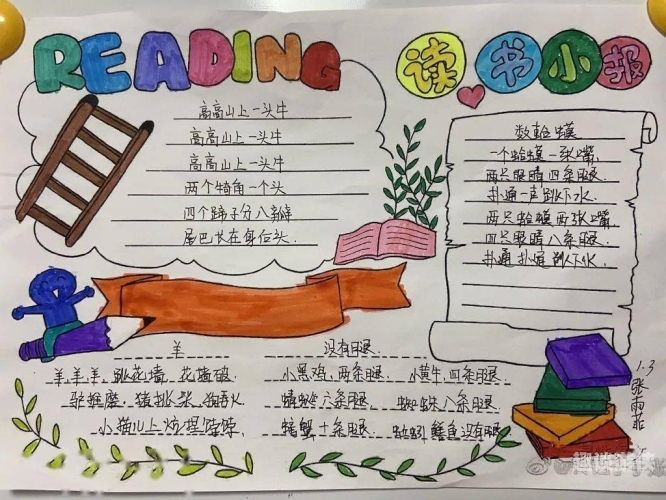 READING
读书小报
高高山上一头牛
高高山上一头牛
高高山上一头牛
两个犄角一个头
四个蹄子分八瓣
尾巴长在身后头.
数蛤蟆
一个蛤蟆一张嘴,
两只眼睛四条腿.
扑通一声跳下水.
两只蛤蟆两张嘴,
四只眼睛八条腿.
扑通扑通跳下水.
羊
羊,羊,羊,跳花墙. 花墙破.
驴推磨. 猪挑柴. 狗弄火
小猫儿上炕捏饽饽.
没有腿.
小黑鸡,两条腿. 小黄牛,四条腿.
蜻蜓六条腿. 蜘蛛八条腿
螃蟹十条腿. 蚯蚓鳝鱼没有腿
1.3
张雨菲